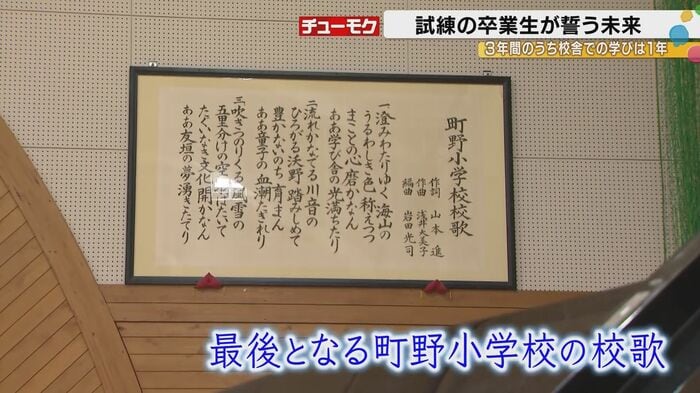 チューモク
試練の卒業生が誓う未来
3年間のうち校舎での学びは1年
町野小学校校歌
作詞 山本進
作曲 浅井大美子
編曲 岩田光司
一 澄みわたりゆく 海山の
うるわしき色 称えつつ
まことの心 磨かなん
ああ学び舎の 光満ちたり
二 流れかなでる 川音の
ひろがる沃野 踏みしめて
豊かないのち 育まん
ああ童子の 血潮たぎれり
三 吹きつのりくる 風雪の
五里分けの空
たぐいなき文化 開かなん
ああ友垣の 夢湧きたてり
最後となる町野小学校の校歌